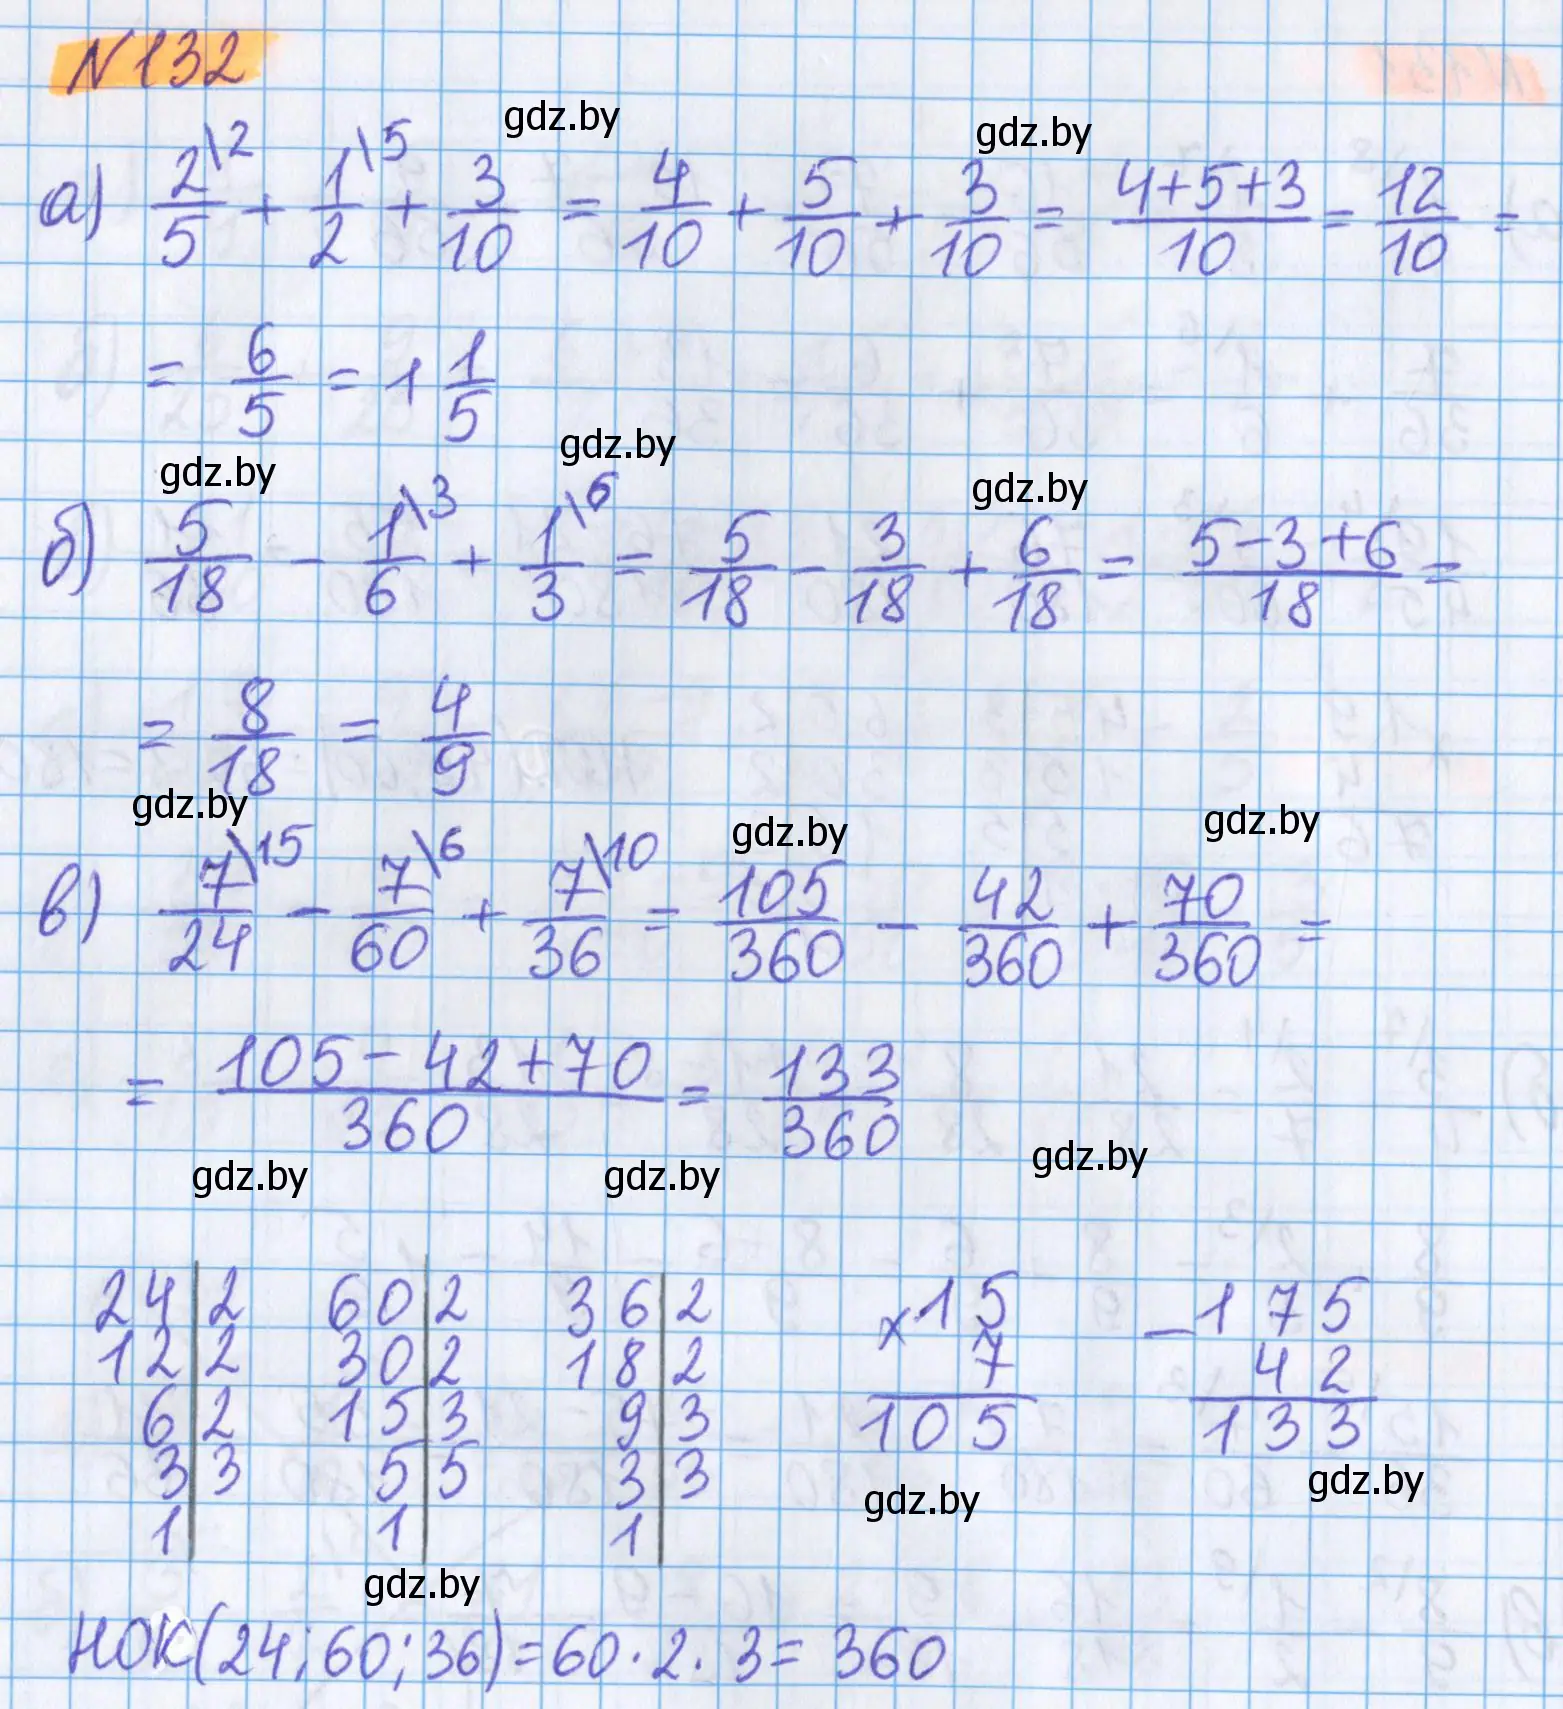 N132
gdz.by
gdz.by
а) 2/5\2 + 1/2\5 + 3/10 = 4/10 + 5/10 + 3/10 = (4+5+3)/10 = 12/10 =
= 6/5 = 1 1/5
gdz.by
gdz.by
gdz.by
б) 5/18 - 1/6\3 + 1/3\6 = 5/18 - 3/18 + 6/18 = (5-3+6)/18 =
= 8/18 = 4/9
gdz.by
gdz.by
gdz.by
в) 7/24\15 - 7/60\6 + 7/36\10 = 105/360 - 42/360 + 70/360 =
= (105-42+70)/360 = 133/360
gdz.by
gdz.by
gdz.by
24|2 60|2 36|2 ×15 -175
12|2 30|2 18|2 7 42
6|2 15|3 9|3 105 133
3|3 5|5 3|3
1| 1| 1|
gdz.by
gdz.by
gdz.by
НОК(24;60;36)=60·2·3=360